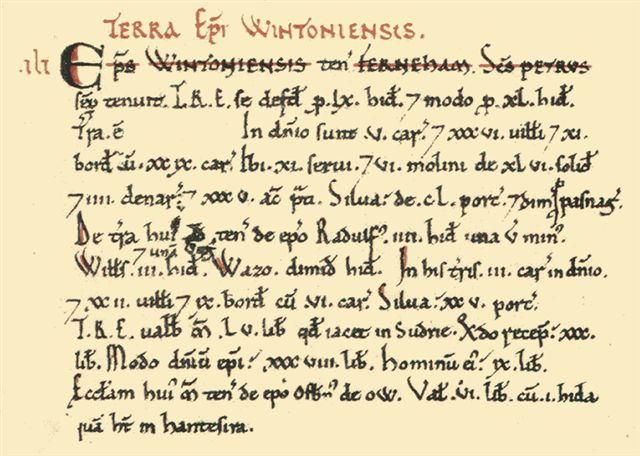 TERRA EP̄I WINTONIENSIS.
.iii. EP̄S WINTONIENSIS ten' FERNEHAM. Sc̄s PETRUS
sēp tenuit. T.R.E. se defđ p. lx. hiđ. ⁊ modo p. xl. hiđ.
Tr̄a. ē In dn̄io sunt .v. car'. ⁊ xxxvi. uilłi ⁊ xi.
borđ cū. xxix. car'. Ibi. xi. serui. ⁊ vi. molini de xlvi. soliđ
⁊ iiii. denar'. ⁊ xxxv. ac̄ p̄ti. Silua: de. cl. porc'. ⁊ dim̄ pasnag'.
De tr̄a hui' ten' de ep̄o Radulf'. iiii. hiđ una v̄ min'.
Wills. iii. hiđ. ⁊ unā Wazo. dimiđ hiđ. In his tr̄is. iii. car' in dn̄io.
⁊ xxii. uilłi ⁊ ix. borđ cū. vi. car'. Silua: xxv. porc'.
T.R.E. ualb̄ m̄. lv. lib̄ qđ iacet in Sudrie. Qđo recep̄: xxx.
lib̄. Modo dn̄iū ep̄i: xxxviii. lib̄. Hominū ei': ix. lib̄.
Eccłam hui' m̄ ten' de ep̄o Osbn' de ow. Vał. vi. lib̄. cū. i. hida
quā ht̄ in hantesira.